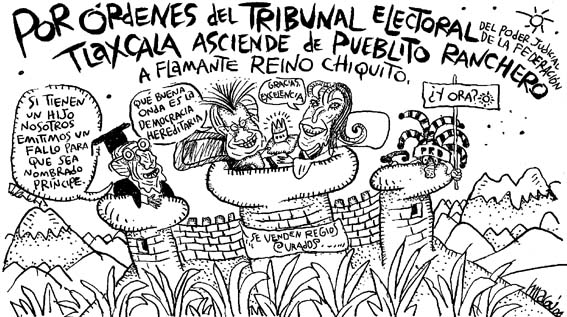 POR ÓRDENES DEL TRIBUNAL ELECTORAL DEL PODER JUDICIAL
DE LA FEDERACIÓN
TLAXCALA ASCIENDE DE PUEBLITO RANCHERO
A FLAMANTE REINO CHIQUITO.
SI TIENEN
UN HIJO
NOSOTROS
EMITIMOS UN
FALLO PARA
QUE SEA
NOMBRADO
PRÍNCIPE.
QUE BUENA
ONDA ES LA
DEMOCRACIA
HEREDITARIA
GRACIAS,
EXCELENCIA
¿Y ORA?
PRI
SE VENDEN REGIOS
CURADOS......